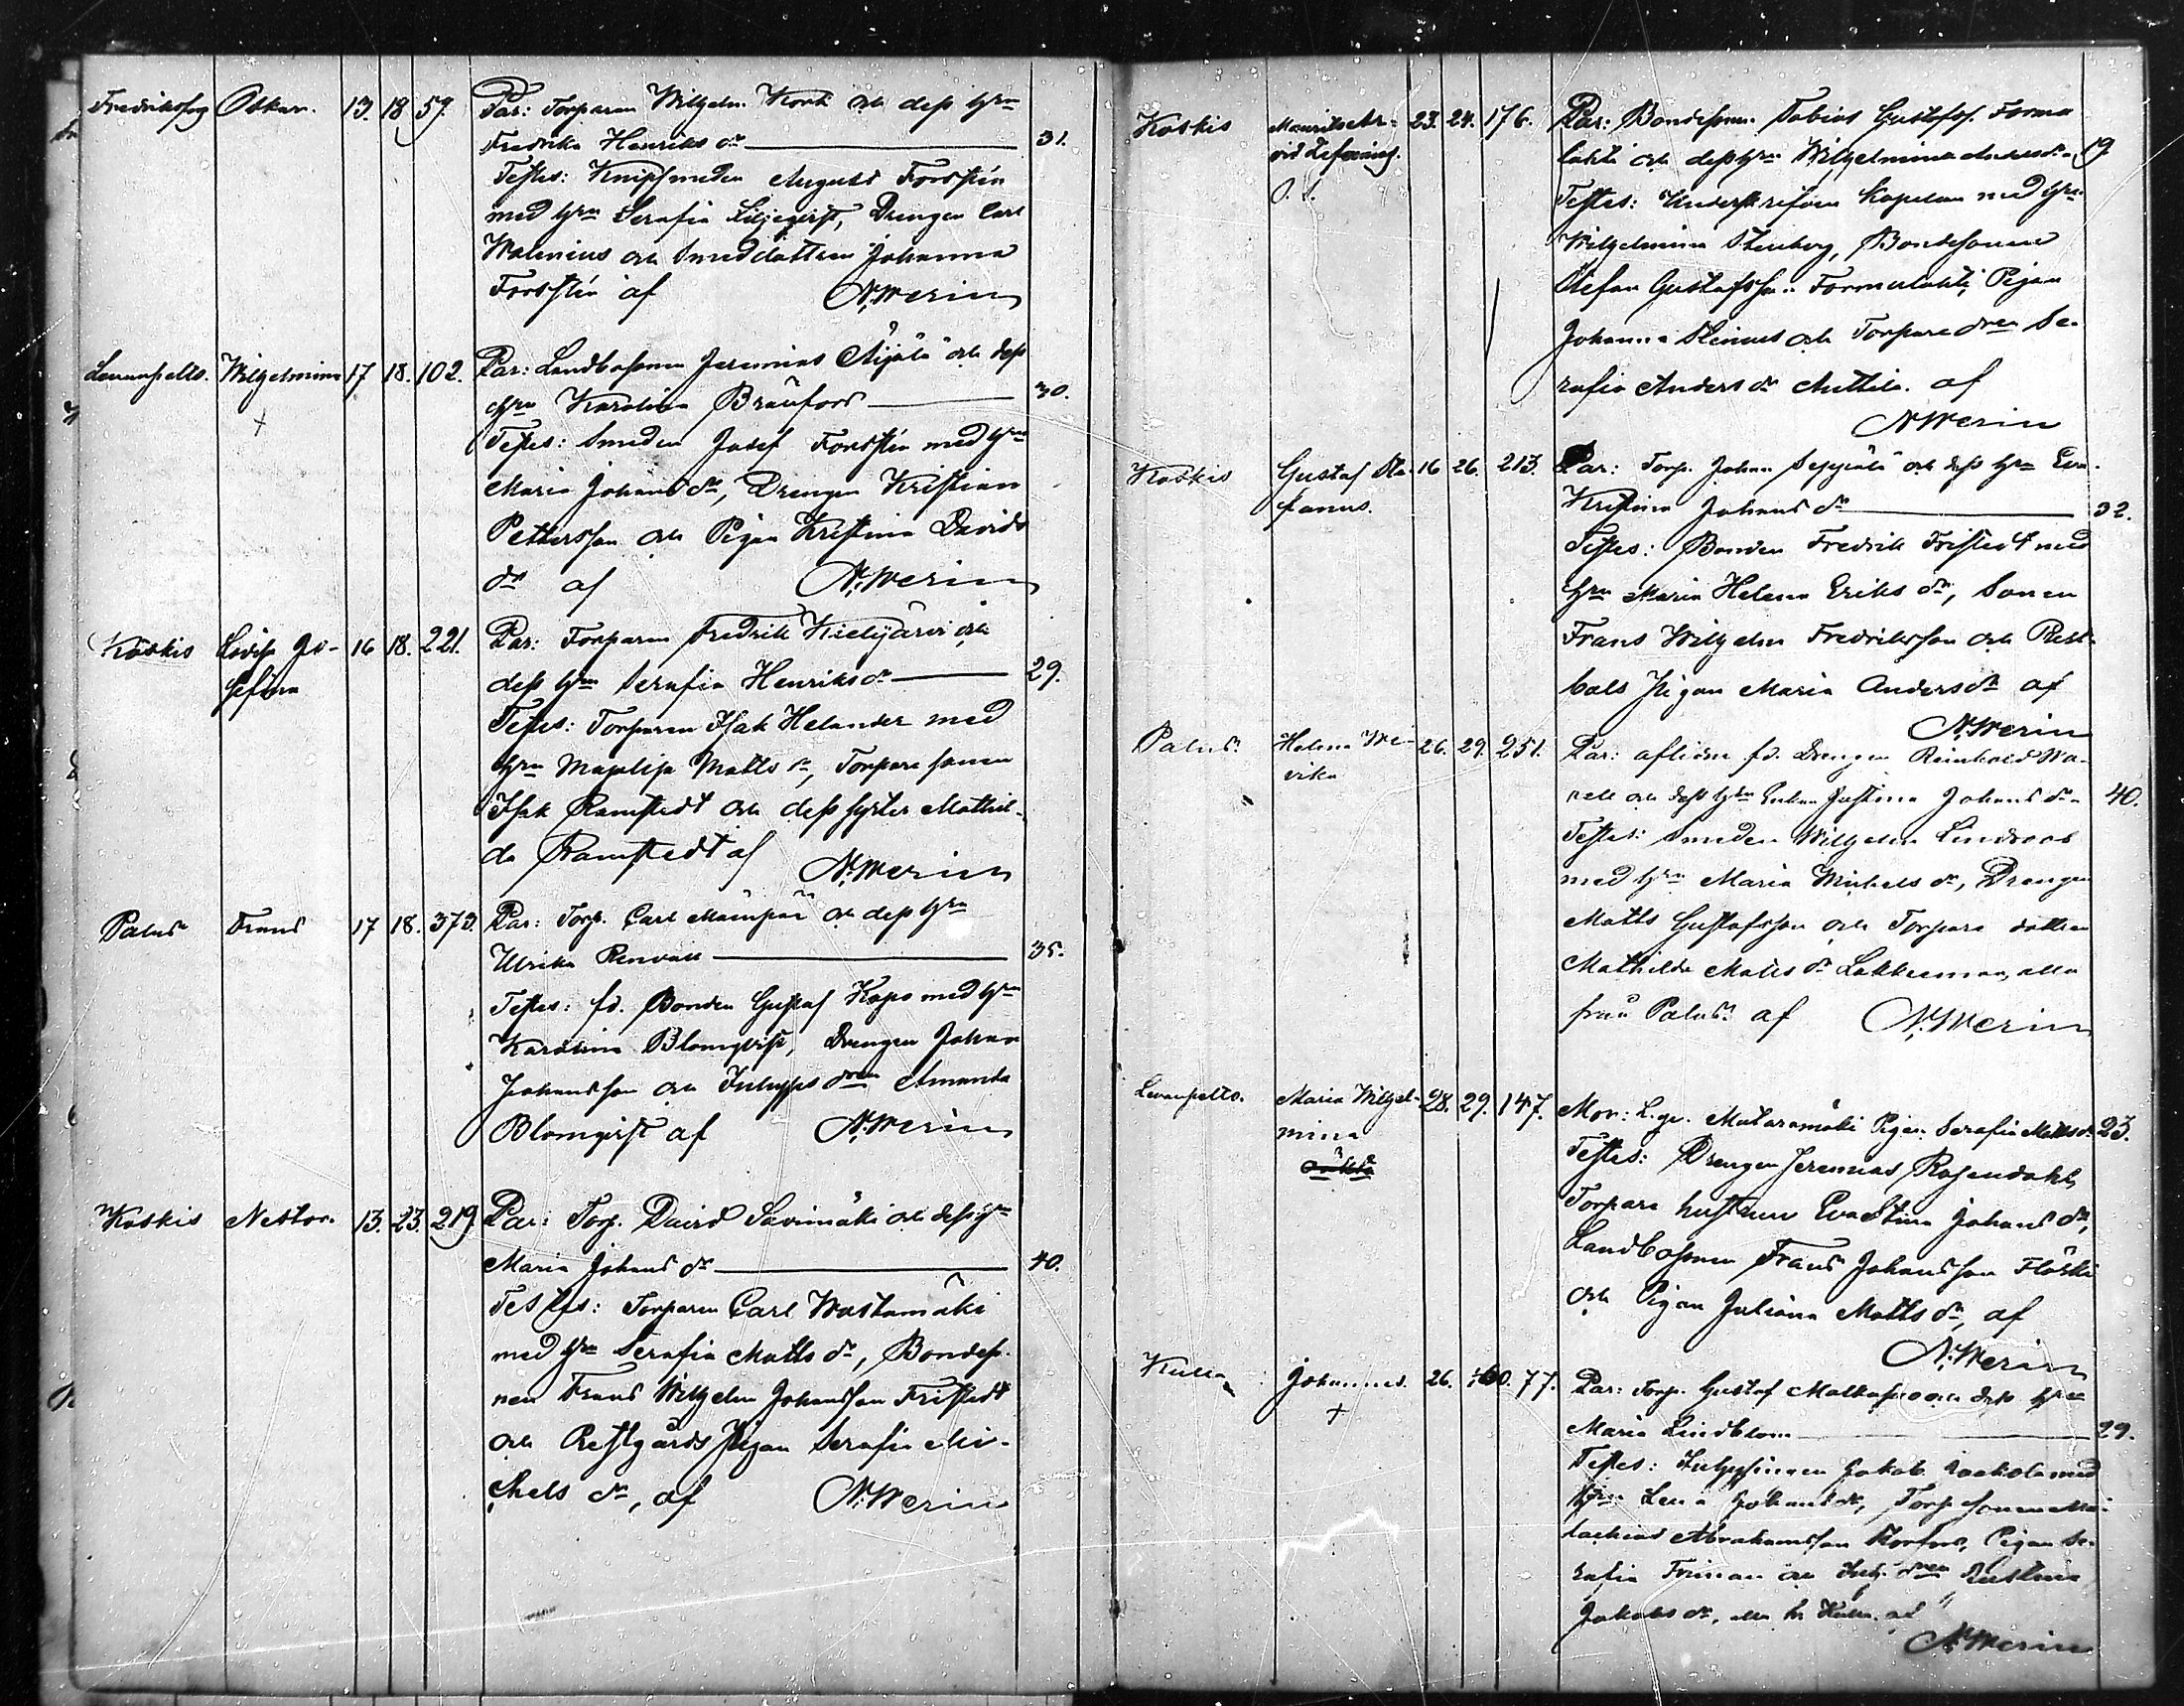 Fredriksfog Oskar. 13. 18 59. Par: Torparen Wilhelm Kork och dess h:ru
Fredrika Henriks dr 31.
Testes: Knipsmeden August Forssten
med h:ru Serafia Liljeqvist, Drengen Carl
Walenius och Smeddottren Johanna
Forssten af N. Merin
Levanpelto. Wilhelmina 17 18. 102. Par: Landbosonen Jeremias Äijälä och dess
+ h:ru Karolina Brånfors 30.
Testes: Smeden Josef Forsstén med h:ru
Maria Johans dr, Drengen Kristian
Pettersson och Pigan Kristina Davids
dr af N. Merin
Koskis Lovisa Jo- 16 18. 221. Par: Torparen Fredrik Kieljärvi och
sefina dess h:ru Serafia Henriks dr 29.
Testes: Torparen Isak Helander med
h:ru Majalisa Matts dr, Torpare sonen
Isak Ramstedt och dess syster Mathil-
da Ramstedt af N. Merin
Palus Frans 17 18. 373. Par: Torp. Carl Mäenpää och dess h:ru
Ulrika Renvall 35.
Testes: fd. Bonden Gustaf Kapo med h:ru
Karolina Blomqvist, Drengen Johan
Johansson och Inhyses dren Amanda
Blomqvist af N. Merin
Koskis Nestor. 13. 23. 219. Par: Torp. David Savimäki och dess h:ru
Maria Johans dr 40.
Testes: Torparen Carl Wastamäki
med h:ru Serafia Matts dr, Bondeso-
nen Frans Wilhelm Johansson Fristedt
och Prestgårds Pigan Serafia Mi-
chels dr, af N. Merin
Koskis Maurits 23. 24. 176. Par: Bondesonen Tobias Gustafss. Forma
vid lahti och dess h:ru Wilhelmina Anders dr 19
Testes: Underskrifven Kapellan med h:ru
Wilhelmina Stenberg, Bondesonen
Stefan Gustafsson Formulahti, Pigan
Johanna Stenius och Torpare dren Se-
rafia Anders dr Anttila. af
N Merin
Koskis Gustaf Ste- 16 26. 213. Par: Torp. Johan Seppälä och dess h:ru Eva
fanus. Kristina Johans dr 32.
Testes: Bonden Fredrik Fristedt med
h:ru Maria Helena Eriks dr, Sonen
Frans Wilhelm Fredriksson och Prest-
bols Pigan Maria Anders dr af
N. Merin
Palus Helena We- 26. 29. 251. Par: aflidne fd. Drengen Reinhold Wa-
vika rell och dess h:ru Enkan Justina Johans dr 40.
Testes: Smeden Wilhelm Lindroos
med h:ru Maria Michels dr, Drengen
Matts Gustafsson och Torpare dottren
Mathilda Matts dr Lakkeman, alla
från Palus af N. Merin
Levanpelto. Maria Wilhel- 28. 29. 147. Mor: L. qv. Mataramäki Pigan Serafia Matts dr 23.
mina Testes: Drengen Jeremias Rosendahl,
oäkta Torpare hustrun Eva Stina Johans dr,
Landbosonen Frans Johansson Flöski
och Pigan Juliana Matts dr, af
N. Merin
Kulla Johannes. 26. 30. 77. Par: Torp. Gustaf och dess h:ru
+ Maria Lindblom 29.
Testes: Inhysingen Jakob med
h:ru Lena Johans dr, Torp. sonen Ma-
lachias Abrahamsson Pigan Se-
rafia Friman och Inh. dren Justina
Jakobs dr, alla fr. Kulla, af
N. Merin